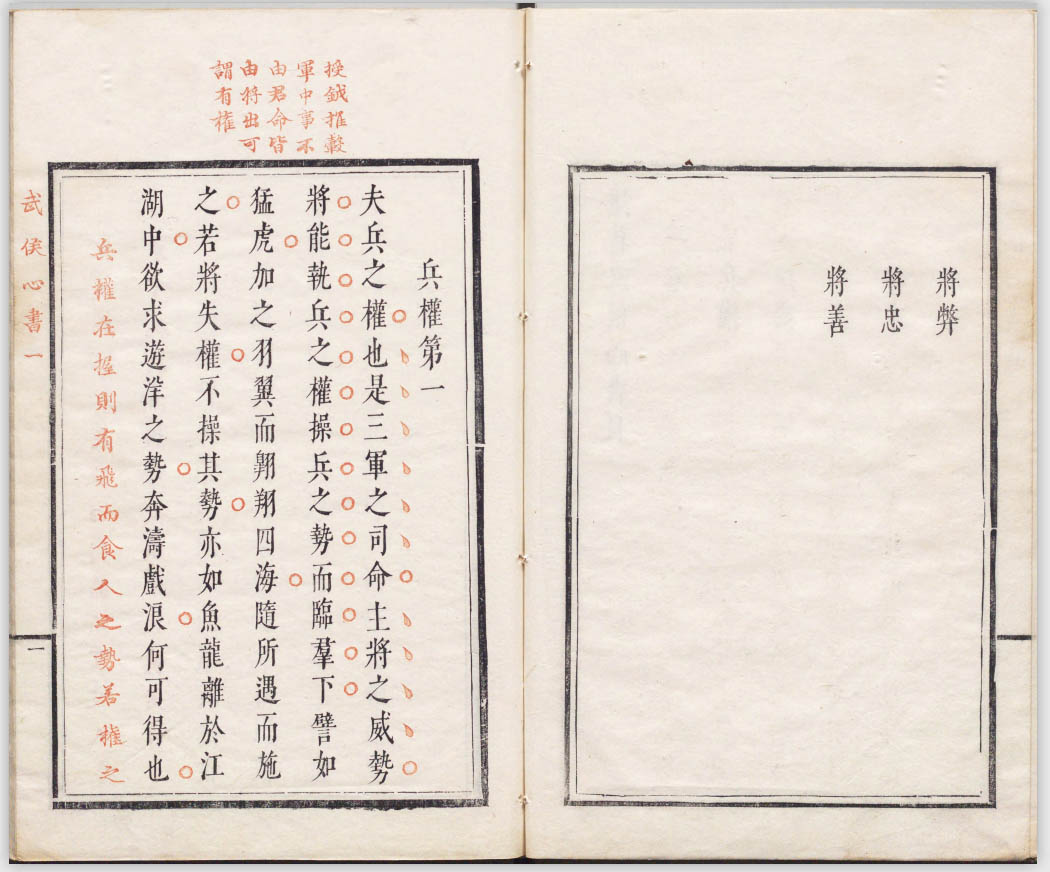 將弊
將忠
將善
授鉞推轂
軍中事不
由君命皆
由將出可
謂有權
兵權第一
夫兵之權也是三軍之司命主將之威勢
將能執兵之權操兵之勢而臨羣下譬如
猛虎加之羽翼而翺翔四海隨所遇而施
之若將失權不操其勢亦如魚龍離於江
湖中欲求遊洋之勢奔濤戲浪何可得也
兵權在握則有飛而食人之勢若權之
武侯心書一
一